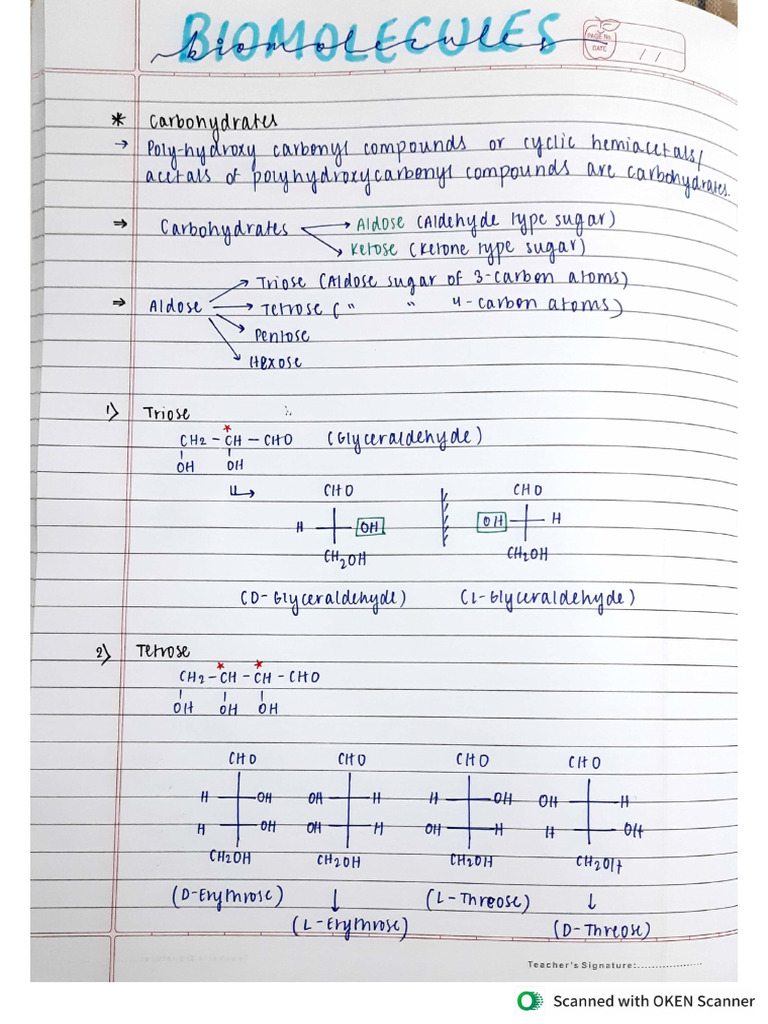 BIOMOLECULES
biomolecules
PAGE No.
DATE
/ /
* Carbohydrates
→ Poly-hydroxy carbonyl compounds or cyclic hemiacetals/
acetals of polyhydroxycarbonyl compounds are carbohydrates.
⇒ Carbohydrates → Aldose (Aldehyde type sugar)
→ Ketose (Ketone type sugar)
⇒ Aldose → Triose (Aldose sugar of 3-carbon atoms)
→ Tetrose ( " " 4-carbon atoms)
→ Pentose
→ Hexose
1) Triose
CH2 - CH - CHO (Glyceraldehyde)
OH OH
CHO CHO
H OH OH H
CH2OH CH2OH
(D-Glyceraldehyde) (L-Glyceraldehyde)
2) Tetrose
CH2 - CH - CH - CHO
OH OH OH
CHO CHO CHO CHO
H OH OH H H OH OH H
H OH OH H OH H H OH
CH2OH CH2OH CH2OH CH2OH
(D-Erythrose) ↓ (L-Threose) ↓
(L-Erythrose) (D-Threose)
Teacher's Signature:....................
Scanned with OKEN Scanner